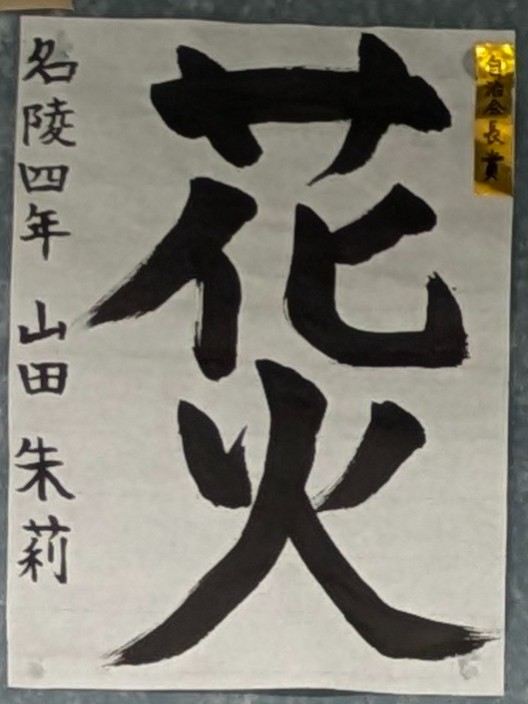 自治会長賞
花火
名陵四年 山田 朱莉